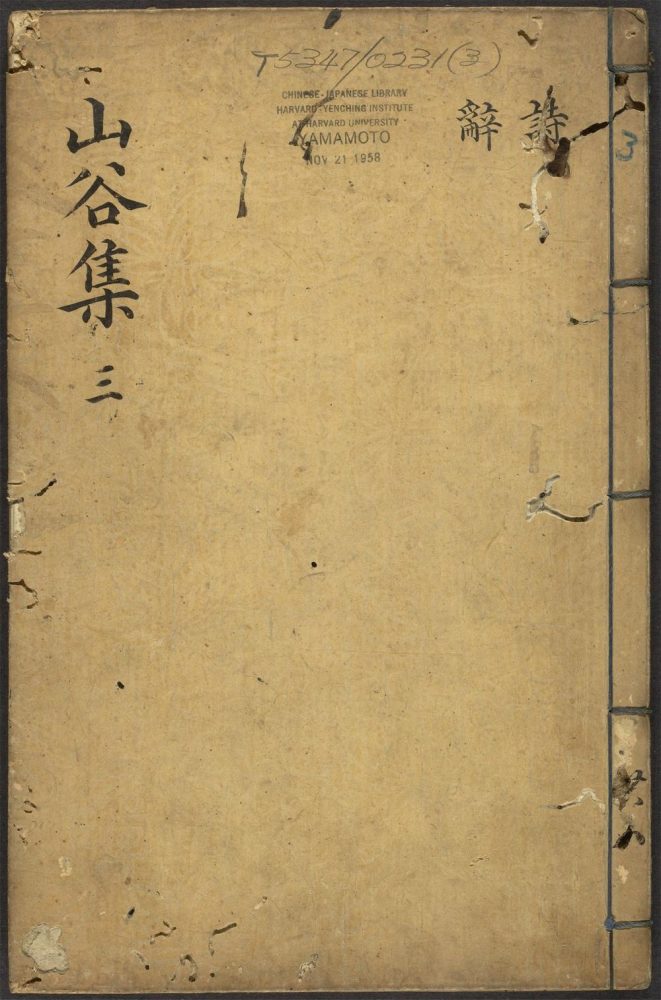 T5347/0231(3)
CHINESE-JAPANESE LIBRARY
HARVARD-YENCHING INSTITUTE
AT HARVARD UNIVERSITY
YAMAMOTO
NOV 21 1958
詩
辭
山谷集 三
3
共八